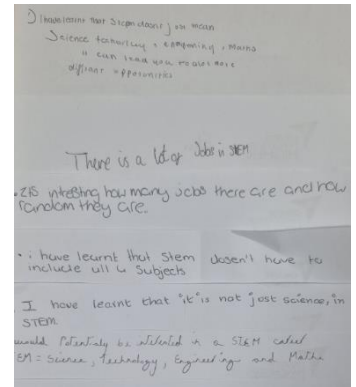 I have learnt that Stem doesn't jon mean
Science technology, computing, Maths
it can lead you to
different opportunities
There is a lot of Jobs in STEM
• its intesting how many jobs there are and how
random they are.
• i have learnt that Stem doesn't have to
include all 4 Subjects
I have learnt that "it" is not jost science, in
STEM.
would Potentialy be intrested in a STEM
EM = Science, Technology, Engineering and Maths